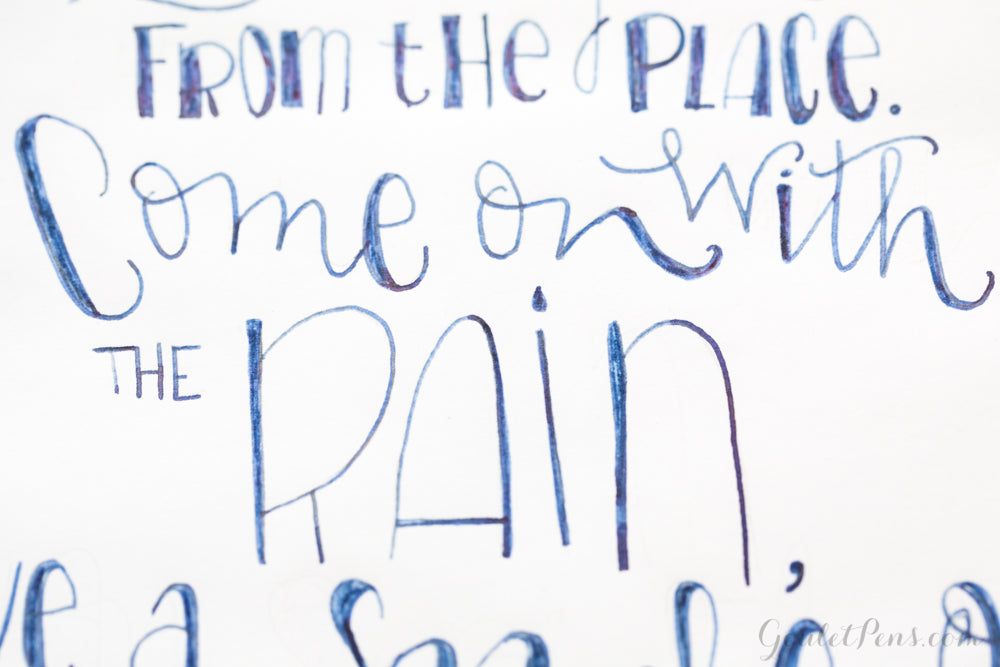 FROM THE PLACE.
Come on with
THE RAIN,
a
GouletPens.com